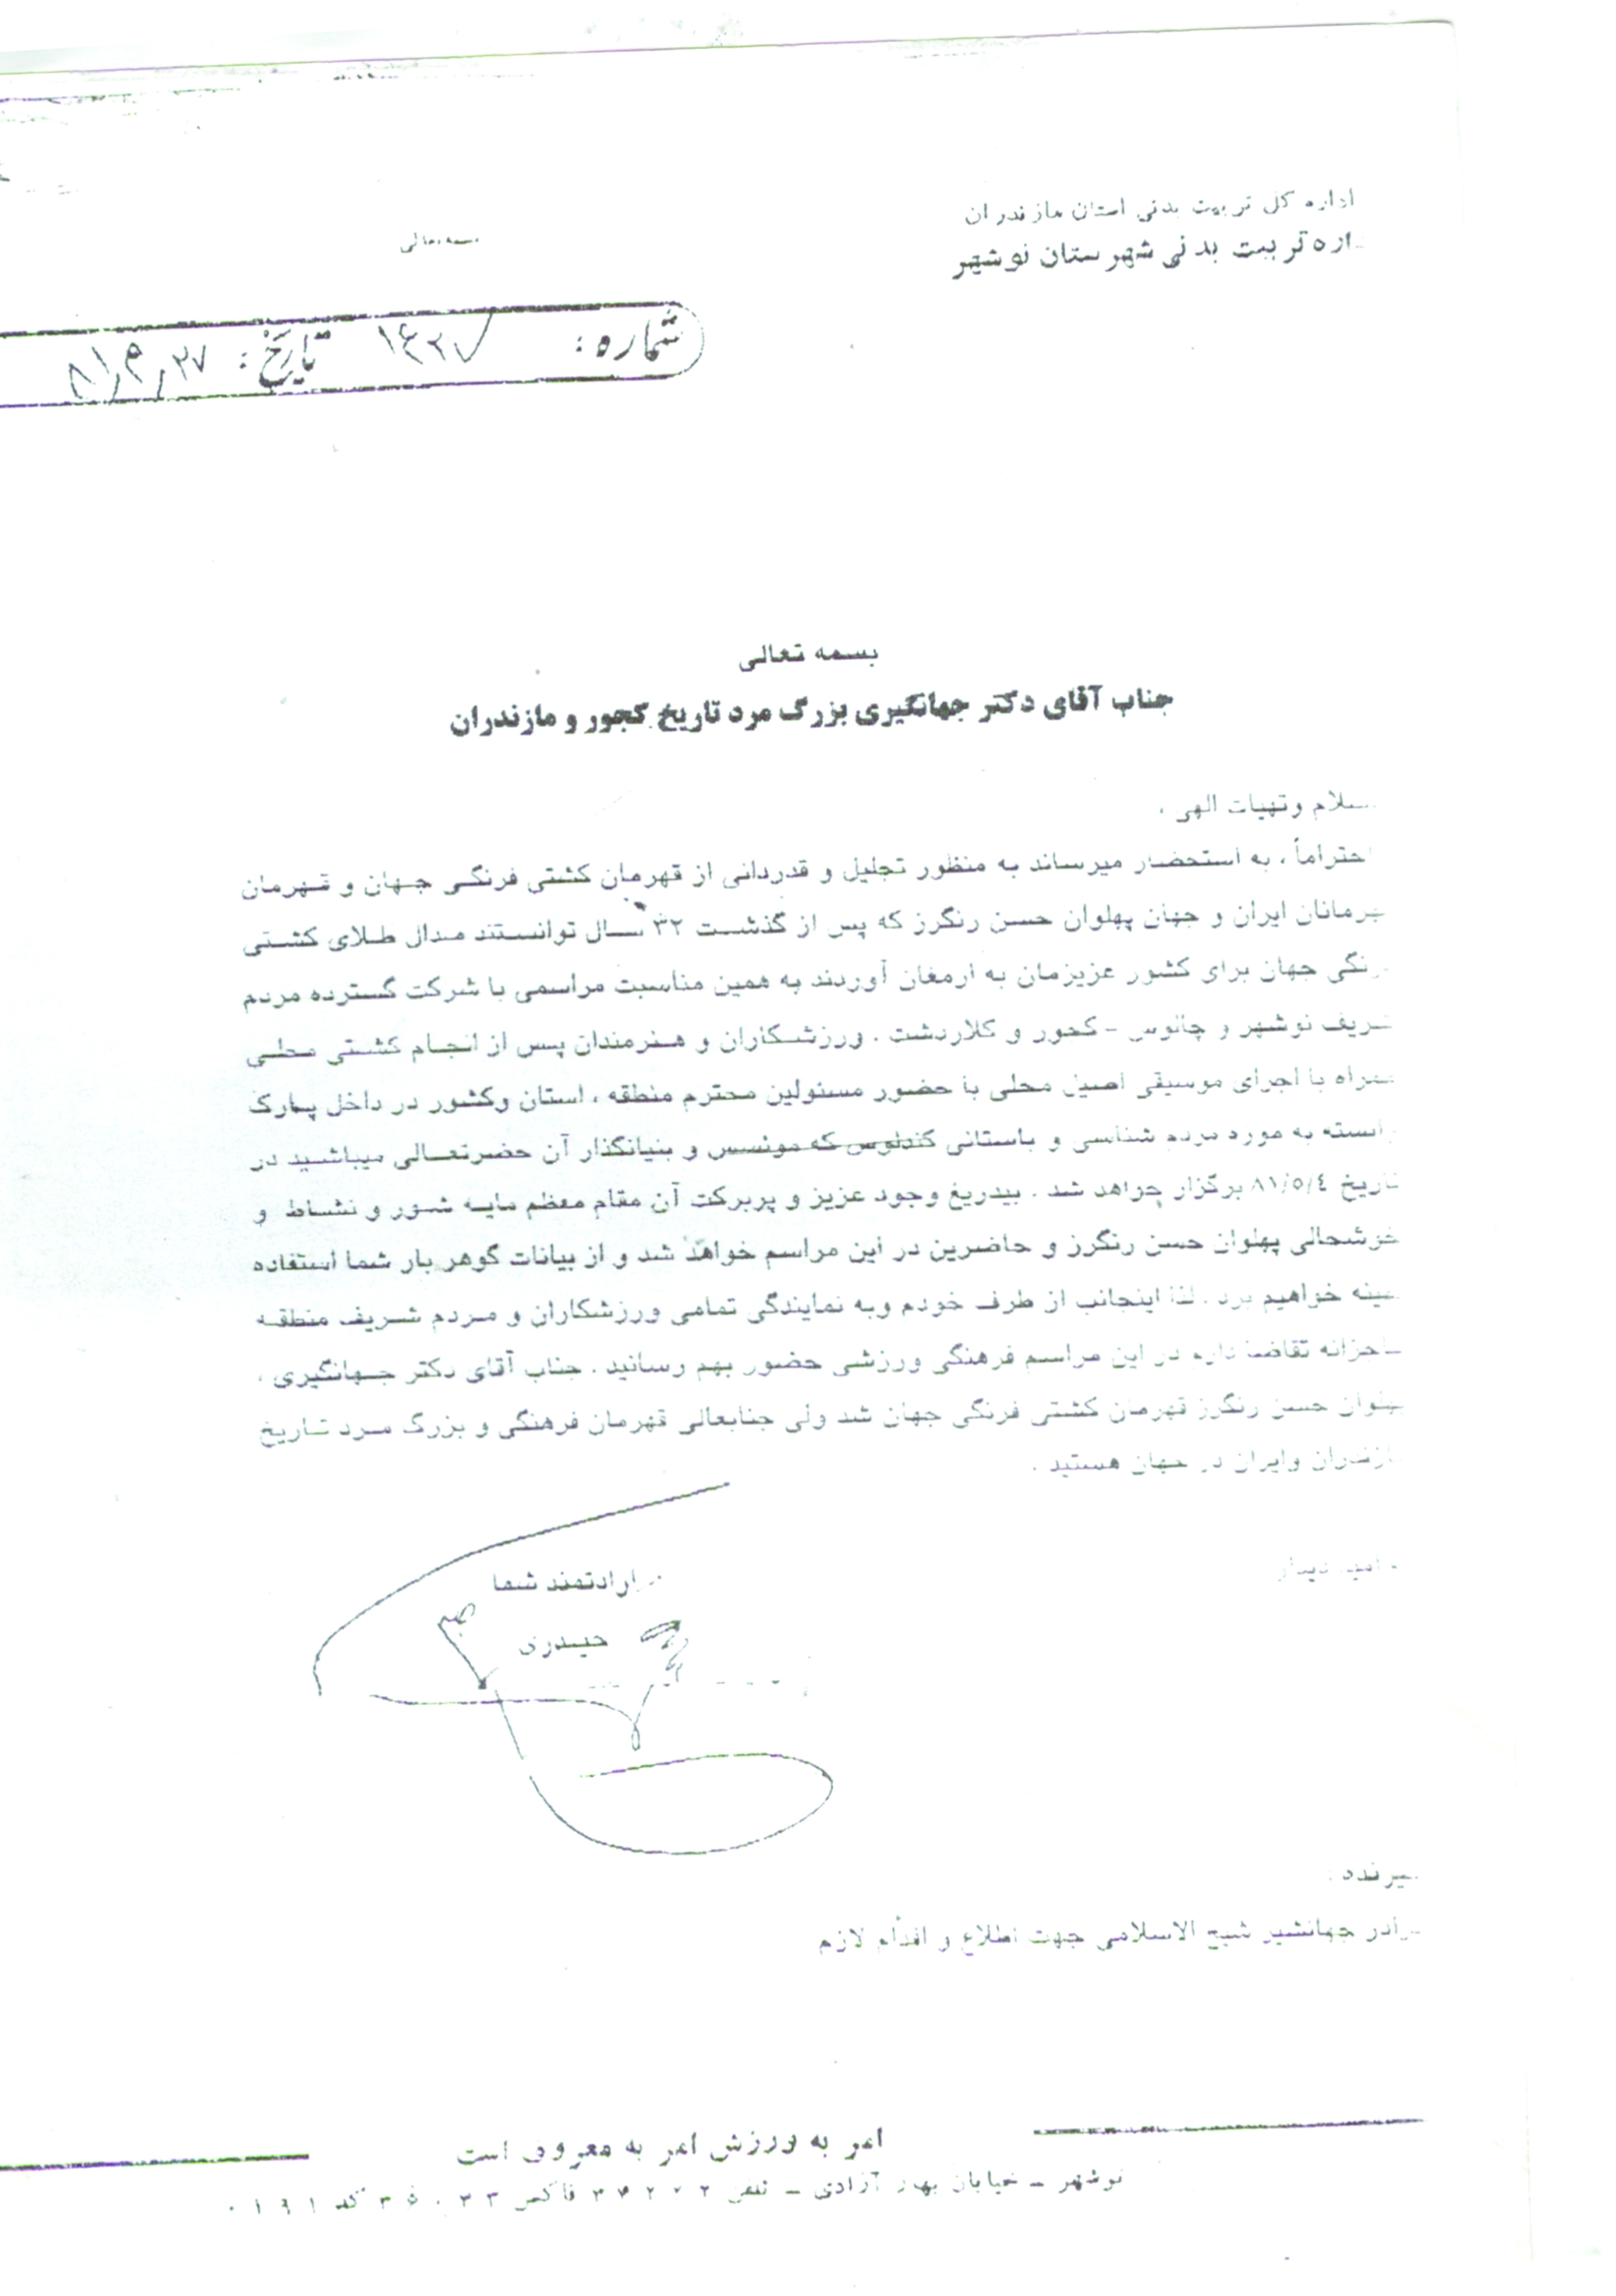 اداره کل تربیت بدنی استان مازندران
اره تربیت بدنی شهرستان نوشهر
بسمه تعالی
شماره:
تاریخ: ۸۱٫۴٫۲۷
بسمه تعالی
جناب آقای دکتر جهانگیری بزرگ مرد تاریخ کجور و مازندران
سلام وتهیات الهی ،
احتراماً ، به استحضار میرساند به منظور تجلیل و قدردانی از قهرمان کشتی فرنگی جهان و قهرمان
هرمانان ایران و جهان پهلوان حسن رنگرز که پس از گذشت ۳۲ سال توانستند مدال طلای کشتی
رنگی جهان برای کشور عزیزمان به ارمغان آوردند به همین مناسبت مراسمی با شرکت گسترده مردم
شریف نوشهر و چالوس - کجور و کلاردشت . ورزشکاران و هنرمندان پس از انجام کشتی محلی
همراه با اجرای موسیقی اصیل محلی با حضور مسئولین محترم منطقه ، استان وکشور در داخل پارک
وابسته به مورد مردم شناسی و باستانی کندلوس که موئسس و بنیانگذار آن حضرتعالی میباشید در
تاریخ ۸۱/۵/۴ برگزار خواهد شد . بیدریغ وجود عزیز و پربرکت آن مقام معظم مایه شور و نشاط و
خوشحالی پهلوان حسن رنگرز و حاضرین در این مراسم خواهد شد و از بیانات گوهر بار شما استفاده
بینه خواهیم برد . لذا اینجانب از طرف خودم وبه نمایندگی تمامی ورزشکاران و مردم شریف منطقه
عاجزانه تقاضا دارم در این مراسم فرهنگی ورزشی حضور بهم رسانید . جناب آقای دکتر جهانگیری ،
پهلوان حسن رنگرز قهرمان کشتی فرنگی جهان شد ولی جنابعالی قهرمان فرهنگی و بزرگ مرد تاریخ
مازندران وایران در جهان هستید .
امید دیدار
ارادتمند شما
حیدری
گیرنده :
برادر جهانشیر شیخ الاسلامی جهت اطلاع و اقدام لازم
امر به ورزش امر به معروف است
نوشهر – خیابان بهار آزادی – تلفن فاکس کد ۰۱۹۱